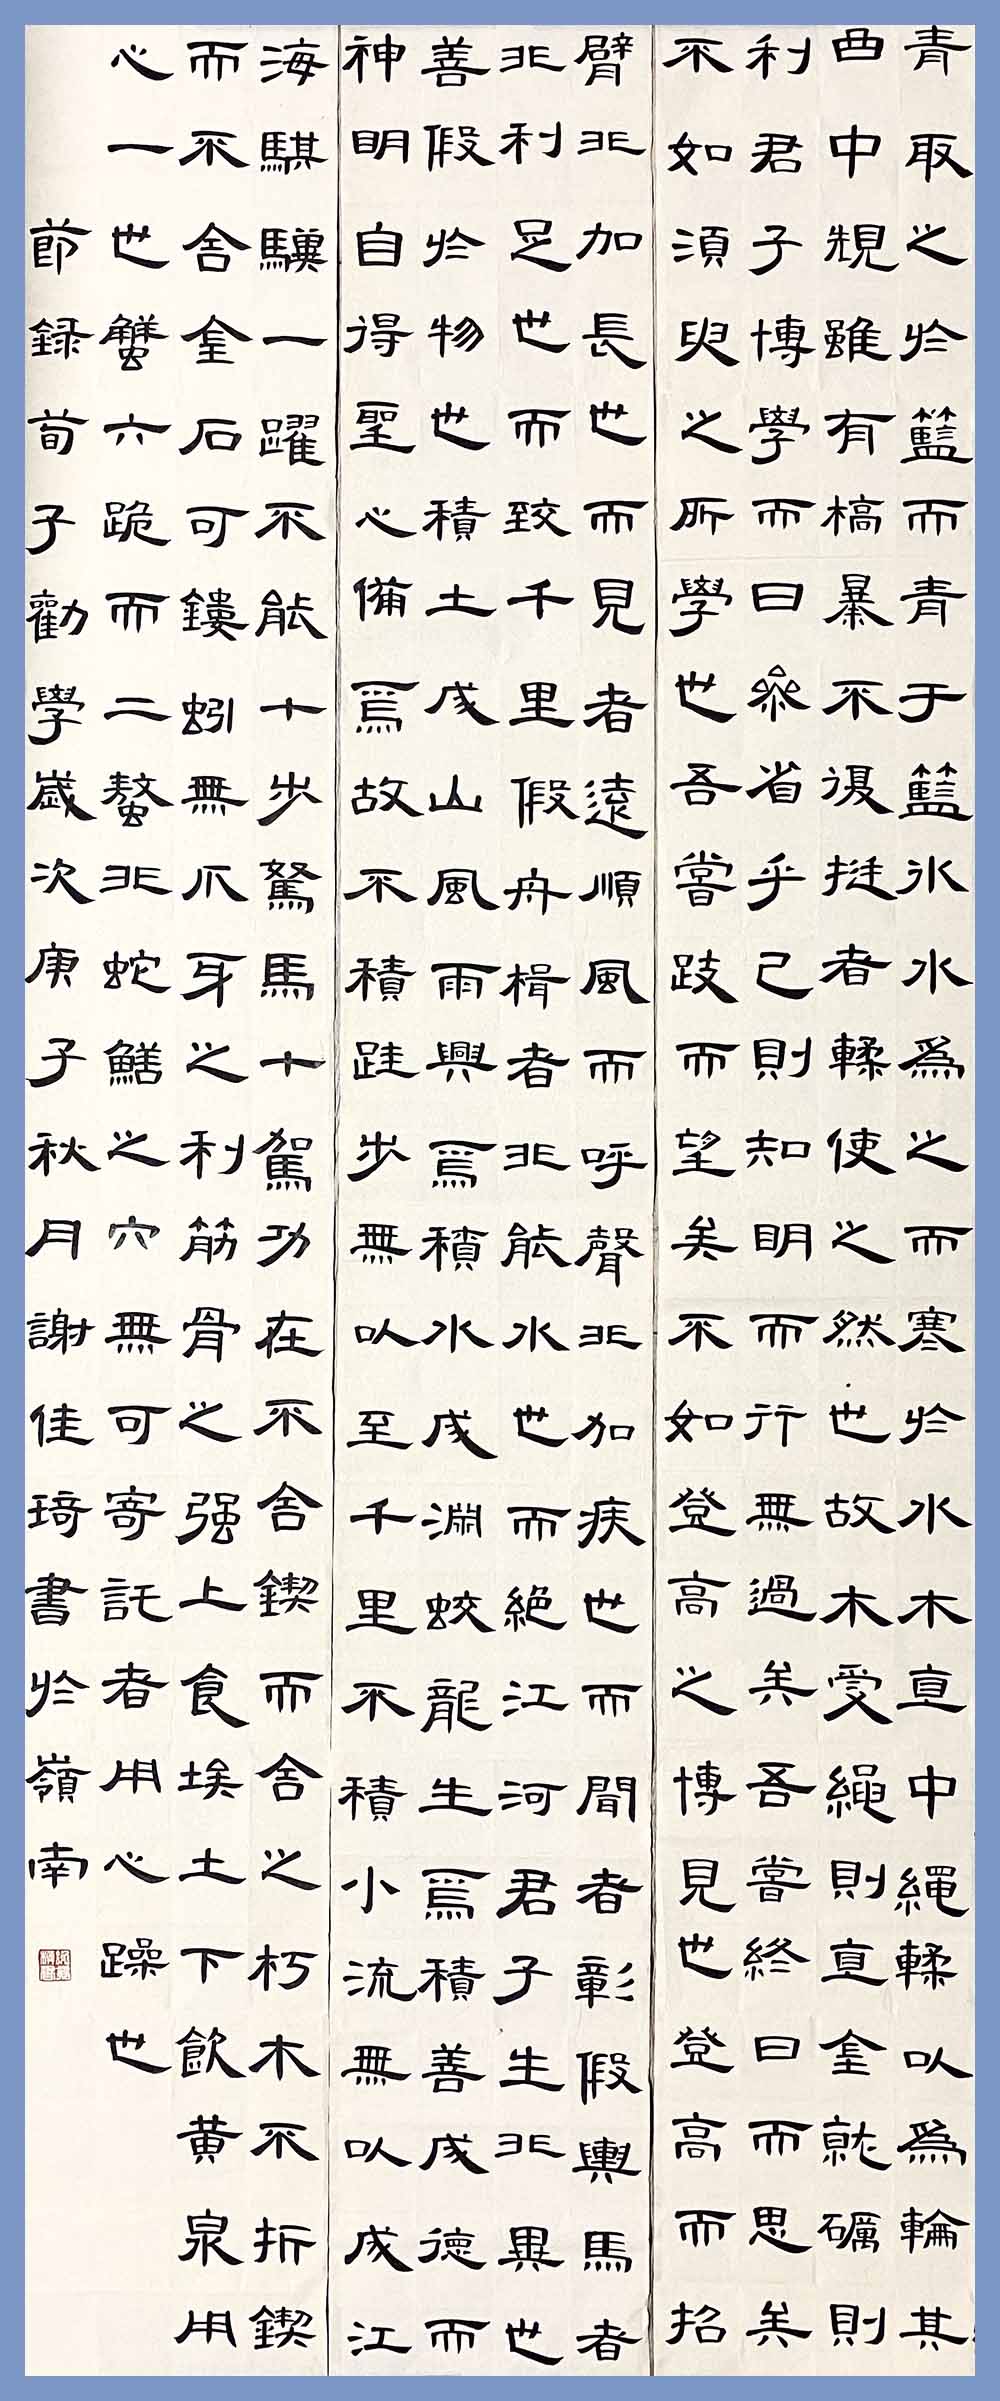 青取之於籃而青于籃冰水為之而寒於水木直中繩輮以為輪其
曲中規雖有槁暴不復挺者輮使之然也故木受繩則直金就礪則
利君子博學而日參省乎己則知明而行無過矣吾嘗終日而思矣
不如須臾之所學也吾嘗跂而望矣不如登高之博見也登高而招
臂非加長也而見者遠順風而呼聲非加疾也而聞者彰假輿馬者
非利足也而致千里假舟楫者非能水也而絕江河君子生非異也
善假於物也積土成山風雨興焉積水成淵蛟龍生焉積善成德而
神明自得聖心備焉故不積跬步無以至千里不積小流無以成江
海騏驥一躍不能十步駑馬十駕功在不舍鍥而舍之朽木不折鍥
而不舍金石可鏤蚓無爪牙之利筋骨之强上食埃土下飲黃泉用
心一也蟹六跪而二螯非蛇鱔之穴無可寄託者用心躁也
節録荀子勸學歲次庚子秋月謝佳琦書於嶺南